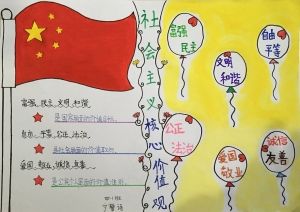 社会主义核心价值观
富强 民主
文明 和谐
自由 平等
公正 法治
爱国 敬业
诚信 友善
富强、民主、文明、和谐,
是国家层面的价值目标.
自由、平等、公正、法治,
是社会层面的价值取向.
爱国、敬业、诚信、友善,
是公民个人层面的价值准则.